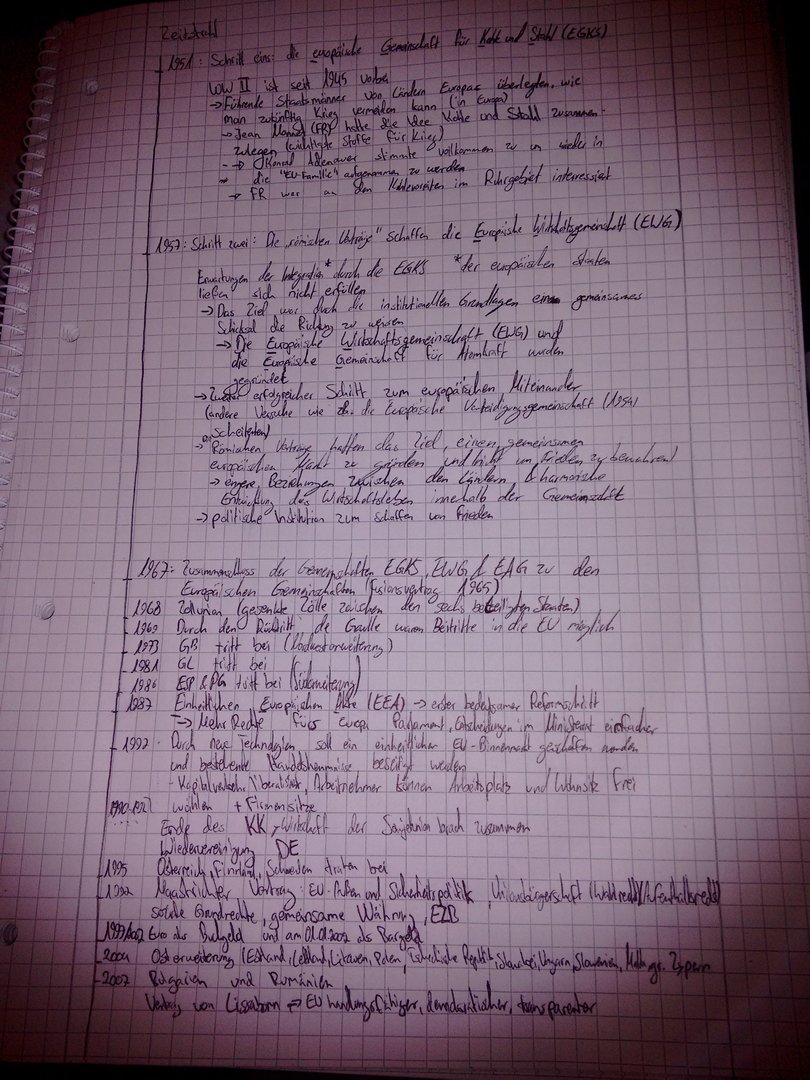 Zeitstrahl
1951: Schritt eins: die europäische Gemeinschaft für Kohle und Stahl (EGKS)
WW II ist seit 1945 vorbei
→ Führende Staatsmänner von Ländern Europas überlegten, wie
man zukünftig Krieg vermeiden kann (in Europa)
→ Jean Monnet (FR) hatte die Idee Kohle und Stahl zusammen-
zulegen (wichtigste Stoffe für Krieg)
→ Konrad Adenauer stimmte vollkommen zu um wieder in
die "EU-Familie" aufgenommen zu werden
→ FR war an den Kohlevorräten im Ruhrgebiet interessiert
1957: Schritt zwei: Die „römischen Verträge" schaffen die Europäische Wirtschaftsgemeinschaft (EWG)
Erwartungen der Integration* durch die EGKS *der europäischen Staaten
ließen sich nicht erfüllen
→ Das Ziel war durch die institutionellen Grundlagen eine gemeinsames
Schicksal die Richtung zu weisen
→ Die Europäische Wirtschaftsgemeinschaft (EWG) und
die Europäische Gemeinschaft für Atomkraft wurden
gegründet
→ Zweiter erfolgreicher Schritt zum europäischen Miteinander
(andere Versuche wie zb. die Europäische Verteidigungsgemeinschaft (1954)
scheiterten)
→ Römischen Verträge hatten das Ziel, einen gemeinsamen
europäischen Markt zu gründen und nicht um Frieden zu bewahren)
→ engere Beziehungen zwischen den Ländern, & harmonische
Entwicklung des Wirtschaftsleben innerhalb der Gemeinschaft
→ politische Institution zum schaffen von Frieden
1967: Zusammenschluss der Gemeinschaften EGKS, EWG & EAG zu den
Europäischen Gemeinschaften (Fusionsvertrag 1965)
1968 Zollunion (gesenkte Zölle zwischen den sechs beteiligten Staaten)
1969 Durch den Rücktritt de Gaulle waren Beitritte in die EU möglich
1973 GB tritt bei (Nordwesterweiterung)
1981 GL tritt bei
1986 ESP & PG tritt bei (Süderweiterung)
1987 Einheitlichen Europäischen Akte (EEA) → erster bedeutsamer Reformschritt
→ Mehr Rechte fürs Europa Parlament, Entscheidungen im Ministerrat einfacher
1992 Durch neue Technologien soll ein einheitlicher EU-Binnenmarkt geschaffen werden
und bestehende Handelshemmnisse beseitigt werden
- Kapitalverkehr liberalisiert, Arbeitnehmer können Arbeitsplatz und Wohnsitz frei
wählen + Firmensitze
Ende des KK, Wirtschaft der Sowjetunion brach zusammen
Wiedervereinigung DE
1995 Österreich, Finnland, Schweden traten bei
1992 Maastrichter Vertrag: EU-Außen und Sicherheitspolitik, Unionsbürgerschaft (Wahlrecht)(Aufenthaltsrecht)
soziale Grundrechte, gemeinsame Währung, EZB
1999/2002 Euro als Buchgeld und am 01.01.2002 als Bargeld
2004 Osterweiterung (Estland, Lettland, Litauen, Polen, Tschechische Republik, Slowakei, Ungarn, Slowenien, Malta, gr. Zypern
2007 Bulgarien und Rumänien
Vertrag von Lissabonn → EU handlungsfähiger, demokratischer, transparenter